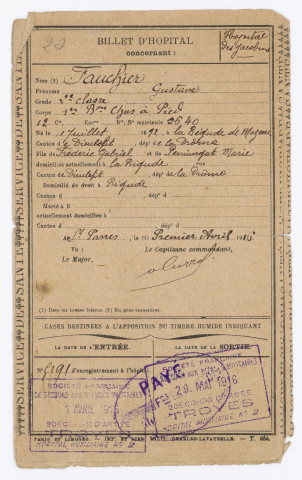 Hôpital
des Jacobins
BILLET D'HOPITAL
concernant :
Nom (1) Fauchier
Prénoms Gustave
Grade 2e classe
Corps 1er Bon Chas à Pied
12 Cie N° matricule 2640
Né le 1 Juillet 1892 à la Bégude de Mazenc
Canton de Dieulefit dépt de la Drôme
Fils de Frédéric Gabriel et de Marie
domiciliés actuellement à la Bégude
Canton de Dieulefit dépt de la Drôme
Domicilié de droit à Bégude
Canton d dépt d
Marié à D
actuellement domiciliée à
Canton d dépt d
A St Parres, le (1) Premier Avril 1916
Vu : Le Capitaine commandant,
Le Major,
(1) Date en toutes lettres. (2) En gros caractères.
CASES DESTINÉES A L'APPOSITION DU TIMBRE HUMIDE INDIQUANT
LA DATE DE L'ENTRÉE. LA DATE DE LA SORTIE.
N° 5191 d'enregistrement à l'hôpital
SOCIÉTÉ FRANÇAISE
DE SECOURS AUX BLESSÉS MILITAIRES
1 AVRIL 1916
20e CORPS D'ARMÉE
TROYES
HOPITAL AUXILIAIRE N° 2
PAYÉ
SOCIÉTÉ FRANÇAISE
DE SECOURS AUX BLESSÉS MILITAIRES
29 MAI 1916
20e CORPS D'ARMÉE
TROYES
HOPITAL AUXILIAIRE N° 2
PARIS ET LIMOGES. — IMP. ET LIBR. MILIT. CHARLES-LAVAUZELLE. — T. 654.
SERVICE DE SANTÉ
SERVICE DE SANTÉ